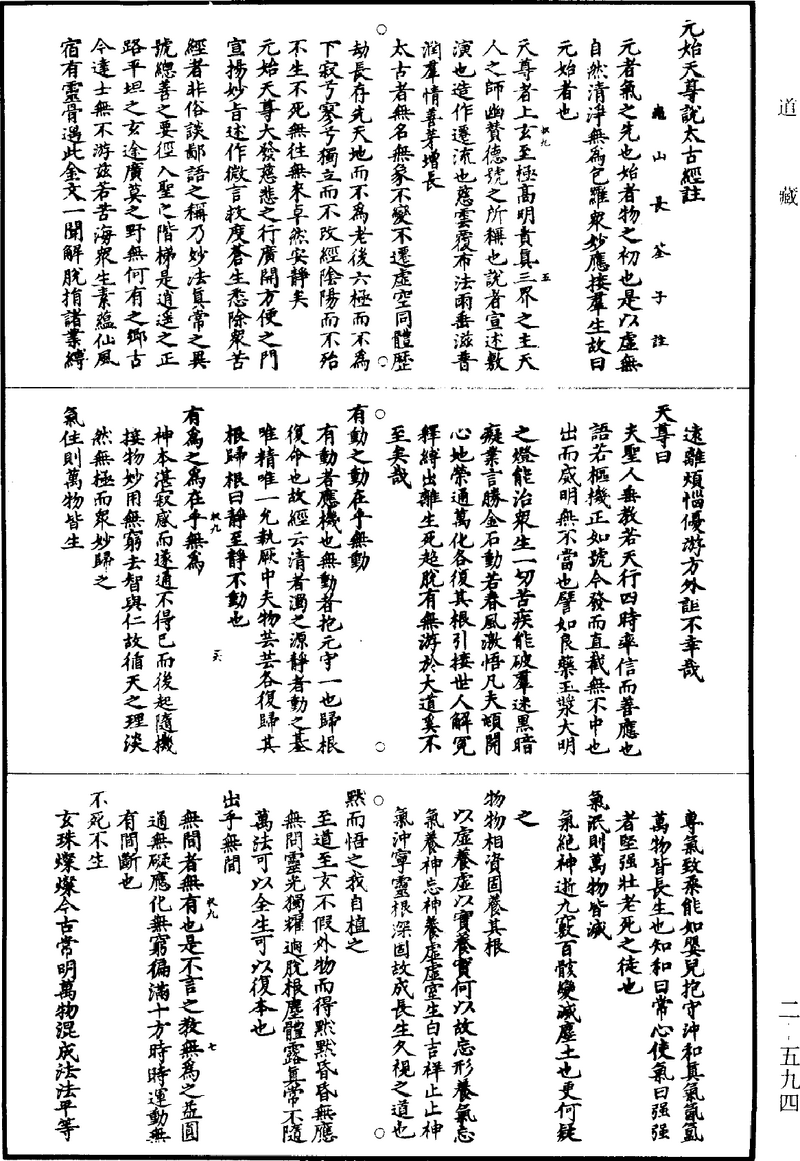 道藏
元始天尊說太古經註
龜山長荃子註
元者氣之先也始者物之初也是以虛無
自然清淨無為包羅眾妙應接羣生故曰
元始者也
天尊者上玄至極高明貴真三界之主天
人之師幽贊德號之所稱也說者宣述敷
演也造作遷流也慈雲覆布法雨垂滋普
潤羣情善芽增長
太古者無名無象不變不遷虛空同體歷
劫長存先天地而不為老後六極而不為
下寂兮寥兮獨立而不改經陰陽而不殆
不生不死無往無來卓然安靜矣
元始天尊大發慈悲之行廣開方便之門
宣揚妙旨述作微言救度蒼生悉除眾苦
經者非俗談鄙語之稱乃妙法真常之異
號總善之要徑入聖之階梯是逍遥之正
路平坦之玄途廣莫之野無何有之鄉古
今達士無不游兹若苦海眾生素蘊仙風
宿有靈骨遇此金文一聞解脫捐諸業縛
遠離煩惱優游方外詎不幸哉
天尊曰
夫聖人垂教若天行四時率信而善應也
語若樞機正如號令發而直截無不中也
出而咸明無不當也譬如良藥玉漿大明
之燈能治眾生一切苦疾能破羣迷黑暗
癡業言勝金石動若春風激悟凡夫頓開
心地榮通萬化各復其根引接世人解冤
釋縛出離生死超脫有無游於大道奚不
至矣哉
有動之動在乎無動
有動者應機也無動者抱元守一也歸根
復命也故經云清者濁之源靜者動之基
唯精唯一允執厥中夫物芸芸各復歸其
根歸根曰靜至靜不動也
有為之為在乎無為
神本湛寂感而遂通不得已而後起隨機
接物妙用無窮去智與仁故循天之理淡
然無極而眾妙歸之
氣住則萬物皆生
專氣致柔能如嬰兒抱守沖和真氣氤氳
萬物皆長生也知和曰常心使氣曰强强
者堅强壯老死之徒也
氣泯則萬物皆滅
氣絕神逝九竅百骸變滅塵土也更何疑
之
物物相資固養其根
以虛養虛以實養實何以故忘形養氣忘
氣養神忘神養虛虛室生白吉祥止止神
氣沖寧靈根深固故成長生久視之道也
默而悟之我自植之
至道至玄不假外物而得默默昏昏無應
無問靈光獨耀逈脫根塵體露真常不隨
萬法可以全生可以復本也
出乎無間
無間者無有也是不言之教無為之益圓
通無礙應化無窮徧滿十方時時運動無
有間斷也
不死不生
玄珠燦燦今古常明萬物混成法法平等
二-五九四